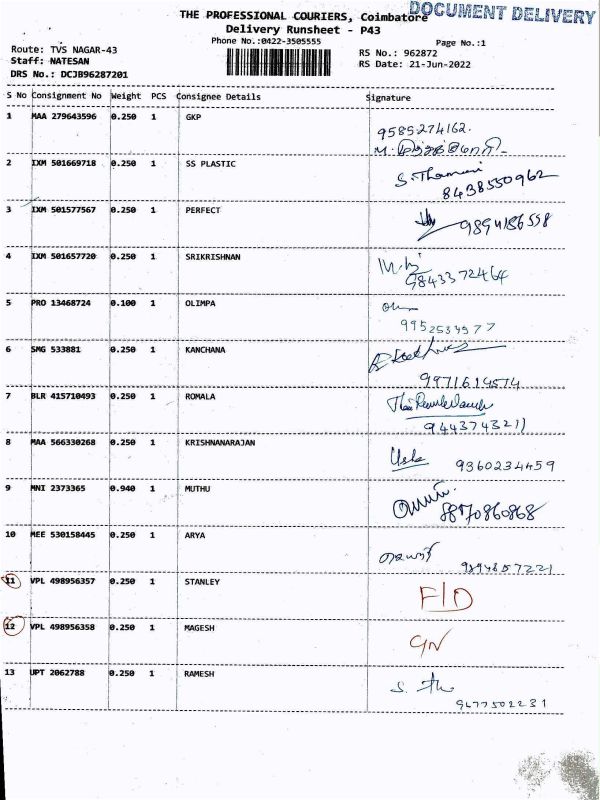 DOCUMENT DELIVERY
THE PROFESSIONAL COURIERS, Coimbatore
Delivery Runsheet - P43
Phone No.:0422-3505555
Page No.:1
Route: TVS NAGAR-43
RS No.: 962872
Staff: NATESAN
RS Date: 21-Jun-2022
DRS No.: DCJB96287201
S No Consignment No Weight PCS Consignee Details Signature
1 MAA 279643596 0.250 1 GKP
9585274162.
2 IXM 501669718 0.250 1 SS PLASTIC
8438550962
3 IXM 501577567 0.250 1 PERFECT
9894186558
4 IXM 501657720 0.250 1 SRIKRISHNAN
9843372464
5 PRO 13468724 0.100 1 OLIMPA
6 SMG 533881 0.250 1 KANCHANA
9971614574
7 BLR 415710493 0.250 1 ROMALA
9443743211
8 MAA 566330268 0.250 1 KRISHNANARAJAN
Usha 9360234459
9 MNI 2373365 0.940 1 MUTHU
8870860868
10 MEE 530158445 0.250 1 ARYA
9894857221
11 VPL 498956357 0.250 1 STANLEY
F/D
12 VPL 498956358 0.250 1 MAGESH
13 UPT 2062788 0.250 1 RAMESH
9677502231